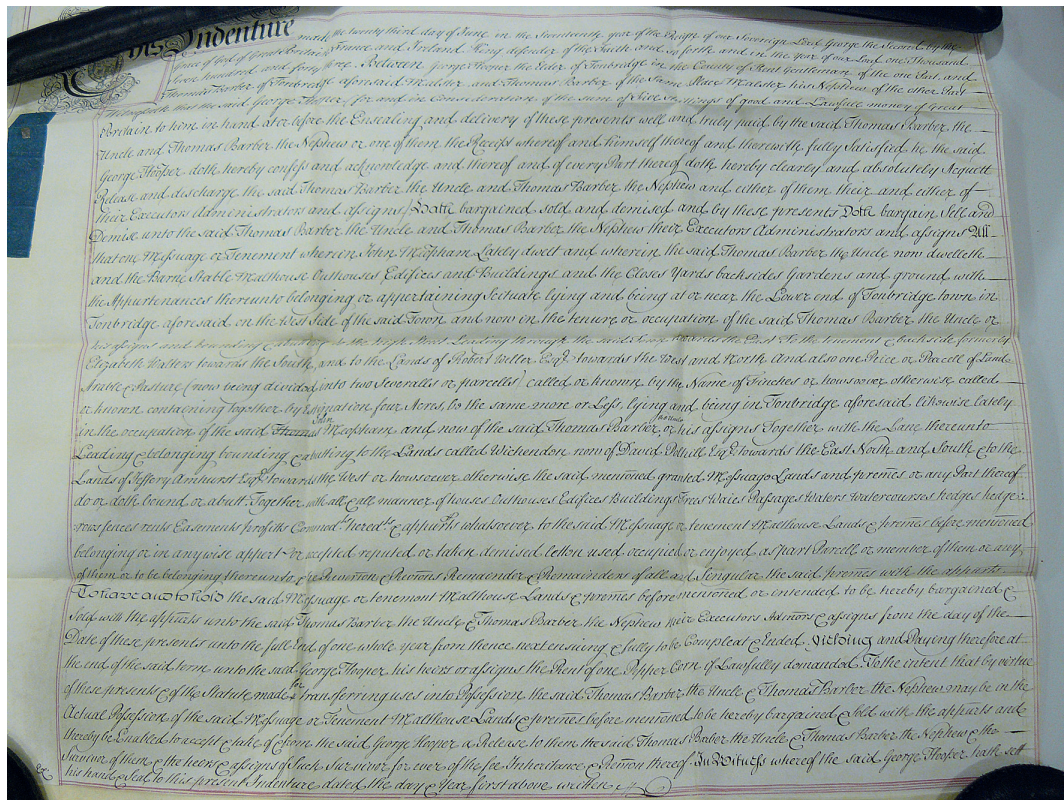 This Indenture made the twenty third day of June in the Seventeenth year of the Reign of our Sovereign Lord George the Second by the
Grace of God of Great Britain France and Ireland King defender of the Faith and so forth and in the year of our Lord one Thousand
Seven hundred and forty three Between George Hooper the Elder of Tonbridge in the County of Kent Gentleman of the one Part and
Thomas Barber of Tonbridge aforesaid Malster and Thomas Barber of the Same Place Malster his Nephew of the other Part
Witnesseth that the said George Hooper for and in Consideration of the sum of Five Shillings of good and Lawfull money of Great
Britain to him in hand at or before the Ensealing and delivery of these presents well and truly paid by the said Thomas Barber the
Uncle and Thomas Barber the Nephew or one of them the Receipt whereof and himself thereof and therewith fully Satisfied he the said
George Hooper doth hereby confess and acknowledge and thereof and of every Part thereof doth hereby clearly and absolutely Acquitt
Release and discharge the said Thomas Barber the Uncle and Thomas Barber the Nephew and either of them their and either of
their Executors Administrators and assigns Hath bargained sold and demised and by these presents Doth bargain Sell and
Demise unto the said Thomas Barber the Uncle and Thomas Barber the Nephew their Executors Administrators and assigns All
that one Messuage or Tenement wherein John Mepham Lately dwelt and wherein the said Thomas Barber the Uncle now dwelleth
and the Barne Stable Malthouse Outhouses Edifices and Buildings and the Closes Yards backsides Gardens and ground with
the Appurtenances thereunto belonging or appertaining Scituate lying and being at or near the Lower end of Tonbridge town in
Tonbridge aforesaid on the West Side of the said Town and now in the tenure or occupation of the said Thomas Barber the Uncle or
his assigns and bounding & abutting to the high Street Leading through the said Town towards the East To the tenement & backside formerly
Elizabeth Walters towards the South and to the Lands of Robert Weller Esqr. towards the West and North And also one Peice or Parcell of Land
Arable & Pasture (now being divided into two Severalls or parcells) called or known by the Name of Finches or howsoever otherwise called
or known containing together by Estimation four Acres, be the same more or Less, lying and being in Tonbridge aforesaid likewise lately
in the occupation of the said Thomas John Mepham and now of the said Thomas Barber the Uncle or his assigns Together with the Lane thereunto
Leading & belonging bounding & abutting to the Lands called Wichendon now of David Polhill Esqr. towards the East North and South & to the
Lands of Jeffery Amhurst Esqr. towards the West or howsoever otherwise the said mentioned granted Messuage Lands and premes or any Part thereof
do or doth bound or abutt. Together with all & all manner of houses Outhouses Edifices Buildings Trees Waies Passages Waters Watercourses hedges hedge
rows fences rents Easements profitts Commodts. heredts. & appurts whatsoever to the said Messuage or tenement Malthouse Lands & premes before mentioned
belonging or in anywise appert or accepted reputed or taken demised letten used occupied or enjoyed as part Parcell or member of them or any
of them or to be belonging thereunto & the Revertion & Revertions Remainder & Remainders of all and Singular the said premes with the appurts
To have and to hold the said Messuage or tenement Malthouse Lands & premes before mentioned or intended to be hereby bargained &
Sold with the appurts unto the said Thomas Barber the Uncle & Thomas Barber the Nephew their Executors Admors & assigns from the day of the
Date of these presents unto the full End of one whole year from thence next ensuing & fully to be Compleat & Ended Yielding and Paying therefore at
the end of the said term unto the said George Hooper his heirs or assigns the Rent of one Pepper Corn if Lawfully demanded. To the intent that by virtue
of these presents & of the Statute made for transferring uses into Possession the said Thomas Barber the Uncle & Thomas Barber the Nephew may be in the
Actual Possession of the said Messuage or Tenement Malthouse Lands & premes before mentioned to be hereby bargained & Sold with the appurts and
thereby be Enabled to accept & take of & from the said George Hooper a Release to them the said Thomas Barber the Uncle & Thomas Barber the Nephew & the
Survivor of them & the heirs & assigns of Such Survivor for ever of the fee Inheritance & Revertion thereof In Witness whereof the said George Hooper hath sett
his hand & Seal to this present Indenture dated the day & Year first above written